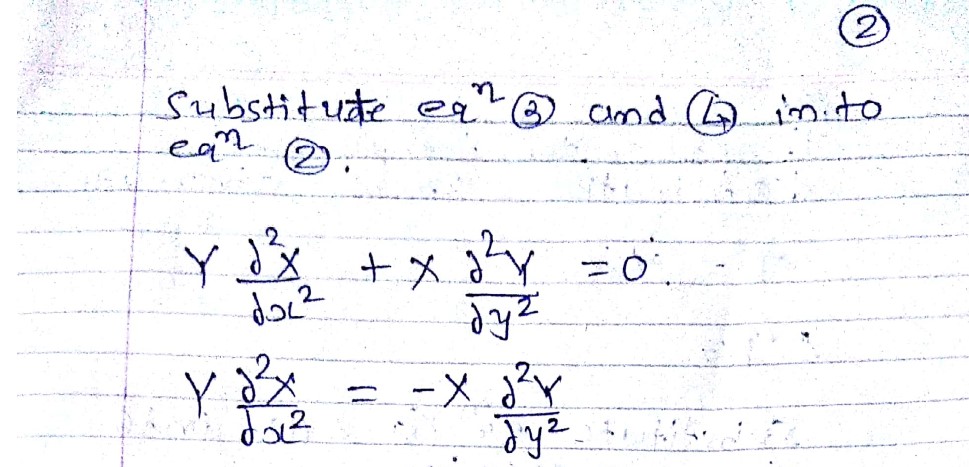 ②
Substitute eqⁿ ③ and ④ in to
eqⁿ ②.
Y ∂²X/∂x² + X ∂²Y/∂y² = 0.
Y ∂²X/∂x² = -X ∂²Y/∂y²